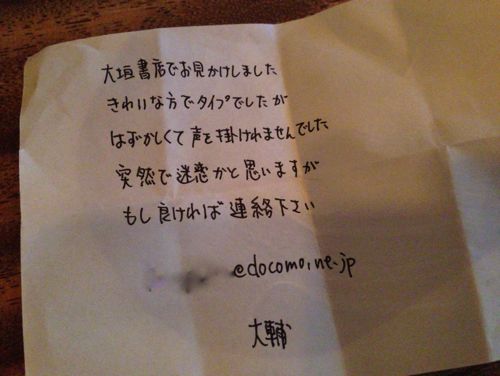 大垣書店でお見かけしました
きれいな方でタイプでしたが
はずかしくて声を掛けれませんでした
突然で迷惑かと思いますが
もし良ければ連絡下さい
@docomo.ne.jp
大輔